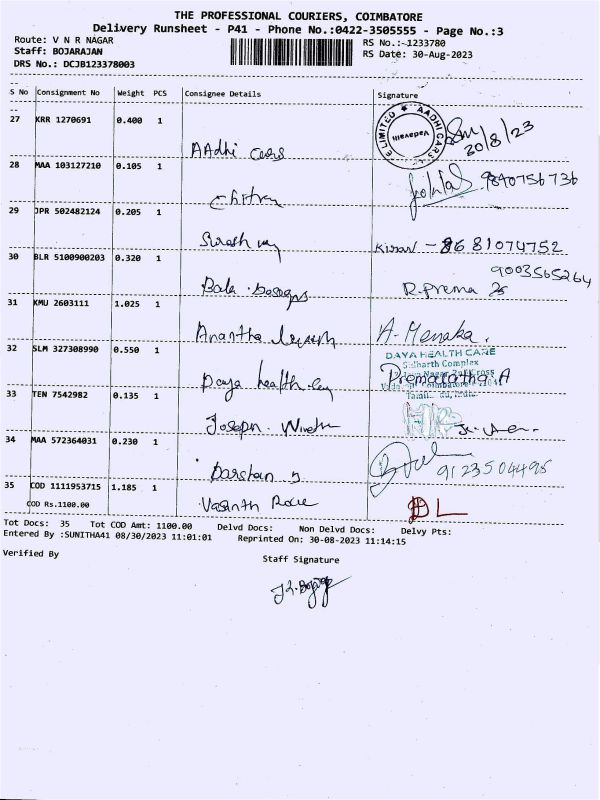 THE PROFESSIONAL COURIERS, COIMBATORE
Delivery Runsheet - P41 - Phone No.:0422-3505555 - Page No.:3
Route: V N R NAGAR RS No.:-1233780
Staff: BOJARAJAN RS Date: 30-Aug-2023
DRS No.: DCJB123378003
S No Consignment No Weight PCS Consignee Details Signature
27 KRR 1270691 0.400 1
AAdhi Cars 30/8/23
28 MAA 103127210 0.105 1
Chitra 9840756736
29 JPR 502482124 0.205 1
Suresh Kiran - 8681074752
30 BLR 5100900203 0.320 1 9003565264
Bala R. Prema
31 KMU 2603111 1.025 1
Anantha A. Menaka.
32 SLM 327308990 0.550 1 DAYA HEALTH CARE
Sidharth Complex
Daya health Premalatha A
33 TEN 7542982 0.135 1
Joseph.
34 MAA 572364031 0.230 1
Darshan 9123504495
35 COD 1111953715 1.185 1
COD Rs.1100.00 Vasanth
Tot Docs: 35 Tot COD Amt: 1100.00 Delvd Docs: Non Delvd Docs: Delvy Pts:
Entered By :SUNITHA41 08/30/2023 11:01:01 Reprinted On: 30-08-2023 11:14:15
Verified By Staff Signature